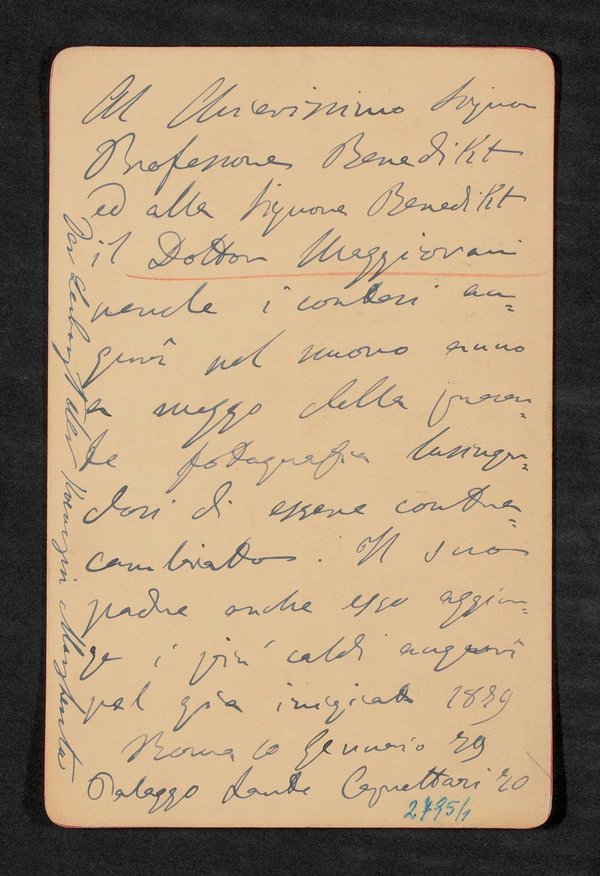 Al Chiarissimo Signor
Professore Benedikt
ed alla Signora Benedikt
il Dottor Maggiorani
rende i cordiali au=
guri pel nuovo anno
a mezzo della presen=
te fotografia lusingan=
dosi di essere contra=
cambiato. Il suo
padre anche esso aggiun=
ge i più caldi auguri
pel già iniziato 1879
Roma 10 Gennaio 79
Palazzo Sante Capettari 70
2795/1
Der Leibarzt der